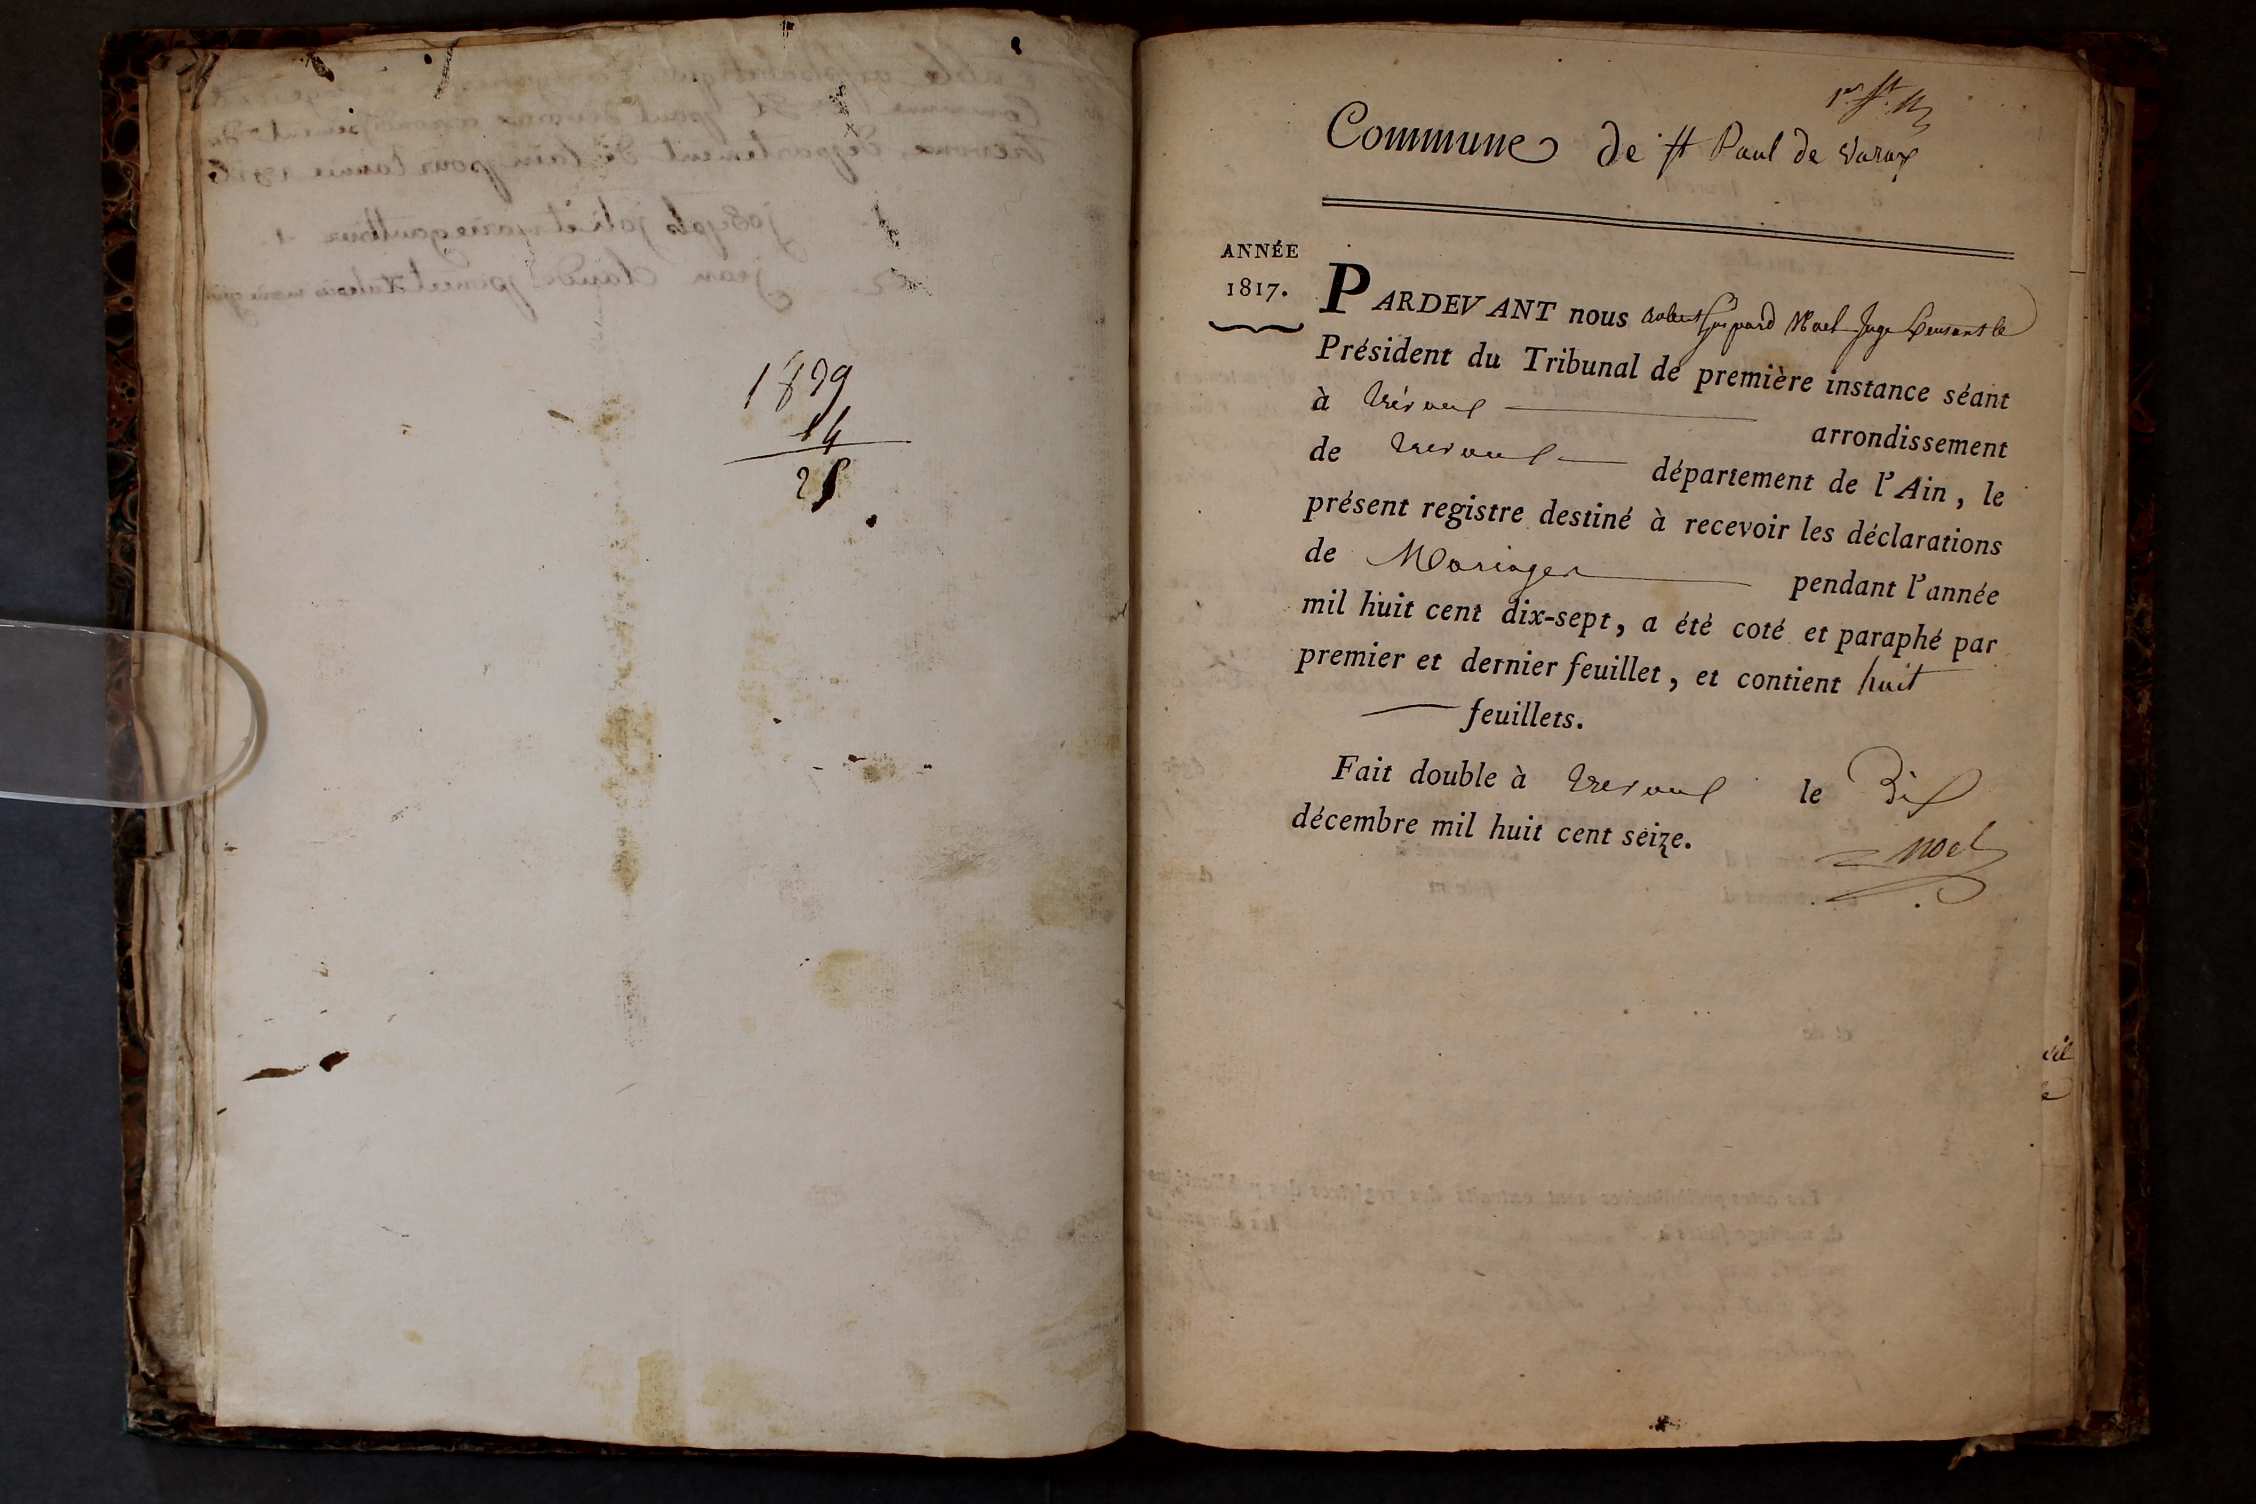 1839
14
25
1er ft. N
Commune de st Paul de Varax
ANNÉE
1817.
PARDEVANT nous Robert Gaspard Noel Juge Pensant le
Président du Tribunal de première instance séant
à Trévoux arrondissement
de Trevoux département de l'Ain, le
présent registre destiné à recevoir les déclarations
de Mariages pendant l'année
mil huit cent dix-sept, a été coté et paraphé par
premier et dernier feuillet, et contient huit
feuillets.
Fait double à Trevoux le Dix
décembre mil huit cent seize.
Noel